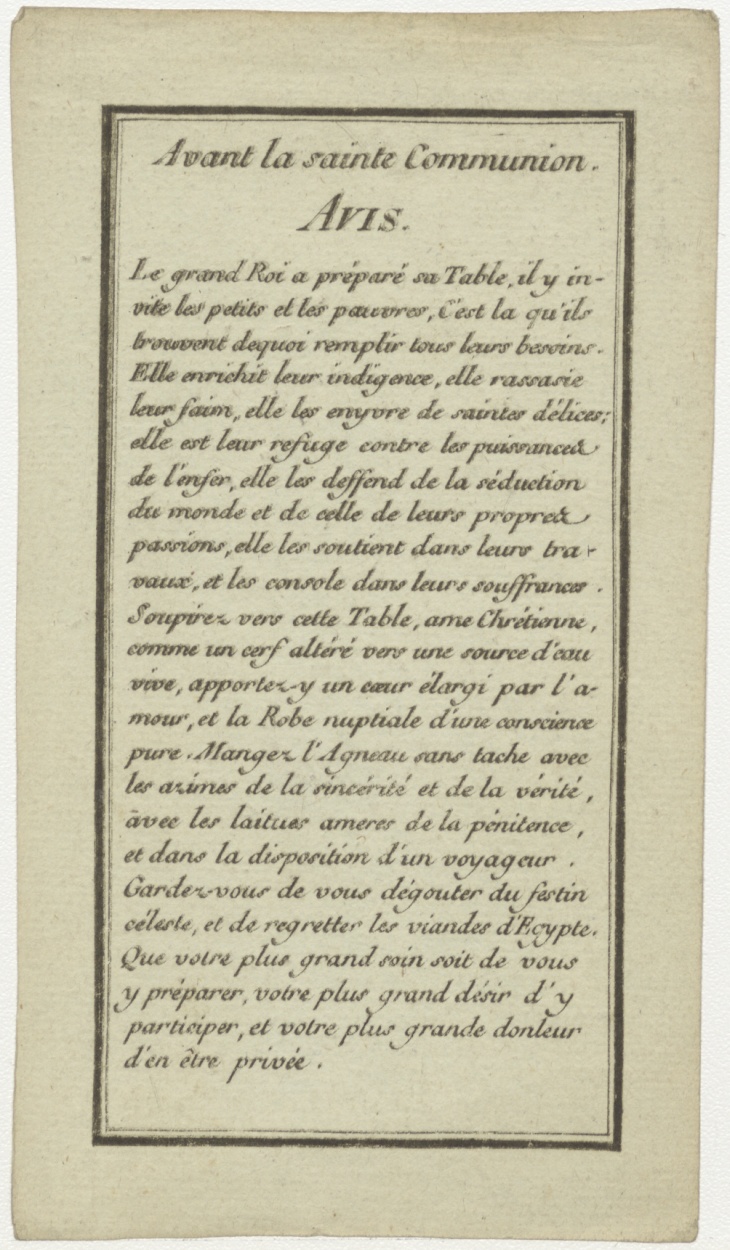 Avant la sainte Communion.
AVIS.
Le grand Roi a préparé sa Table, il y in-
vite les petits et les pauvres, C'est la qu'ils
trouvent dequoi remplir tous leurs besoins.
Elle enrichit leur indigence, elle rassasie
leur faim, elle les enyvre de saintes délices;
elle est leur refuge contre les puissances
de l'enfer, elle les deffend de la séduction
du monde et de celle de leurs propres
passions, elle les soutient dans leurs tra-
vaux, et les console dans leurs souffrances.
Soupirez vers cette Table, ame Chrétienne,
comme un cerf altéré vers une source d'eau
vive, apportez-y un cœur élargi par l'a-
mour, et la Robe nuptiale d'une conscience
pure. Mangez l'Agneau sans tache avec
les azimes de la sincérité et de la vérité,
avec les laitues ameres de la pénitence,
et dans la disposition d'un voyageur.
Gardez-vous de vous dégouter du festin
céleste, et de regretter les viandes d'Egypte.
Que votre plus grand soin soit de vous
y préparer, votre plus grand désir d'y
participer, et votre plus grande donleur
d'en être privée.